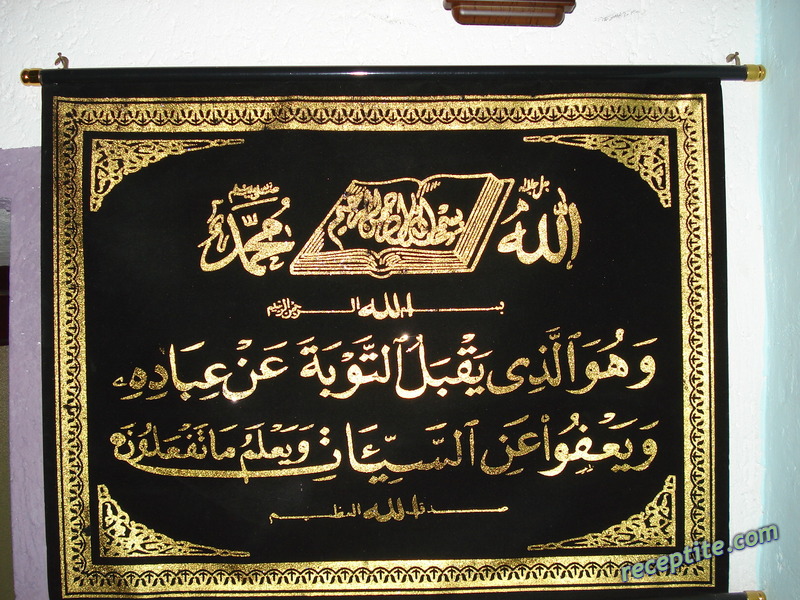 الله جل جلاله
بسم الله الرحمن الرحيم
محمد
بسم الله الرحمن الرحيم
وَهُوَ ٱلَّذِى يَقْبَلُ ٱلتَّوْبَةَ عَنْ عِبَادِهِۦ
وَيَعْفُوا۟ عَنِ ٱلسَّيِّـَٔاتِ وَيَعْلَمُ مَا تَفْعَلُونَ
صدق الله العظيم
receptite.com